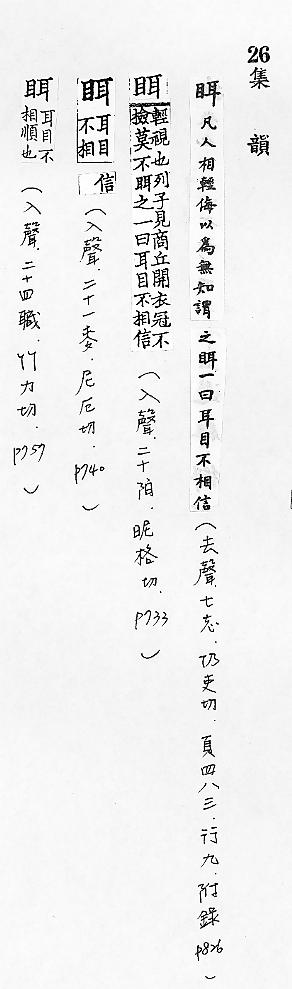 26
集韻
眲 凡人相輕侮以為無知謂之眲一曰耳目不相信(去聲.七志.仍吏切.頁四八三.行九.附錄p826)
眲 輕視也列子見商丘開衣冠不檢莫不眲之一曰耳目不相信(入聲.二十陌.昵格切.p733)
眲 耳目不相信(入聲.二十一麥.尼厄切.p740)
眲 耳目不相順也(入聲.二十四職.竹力切.p757)